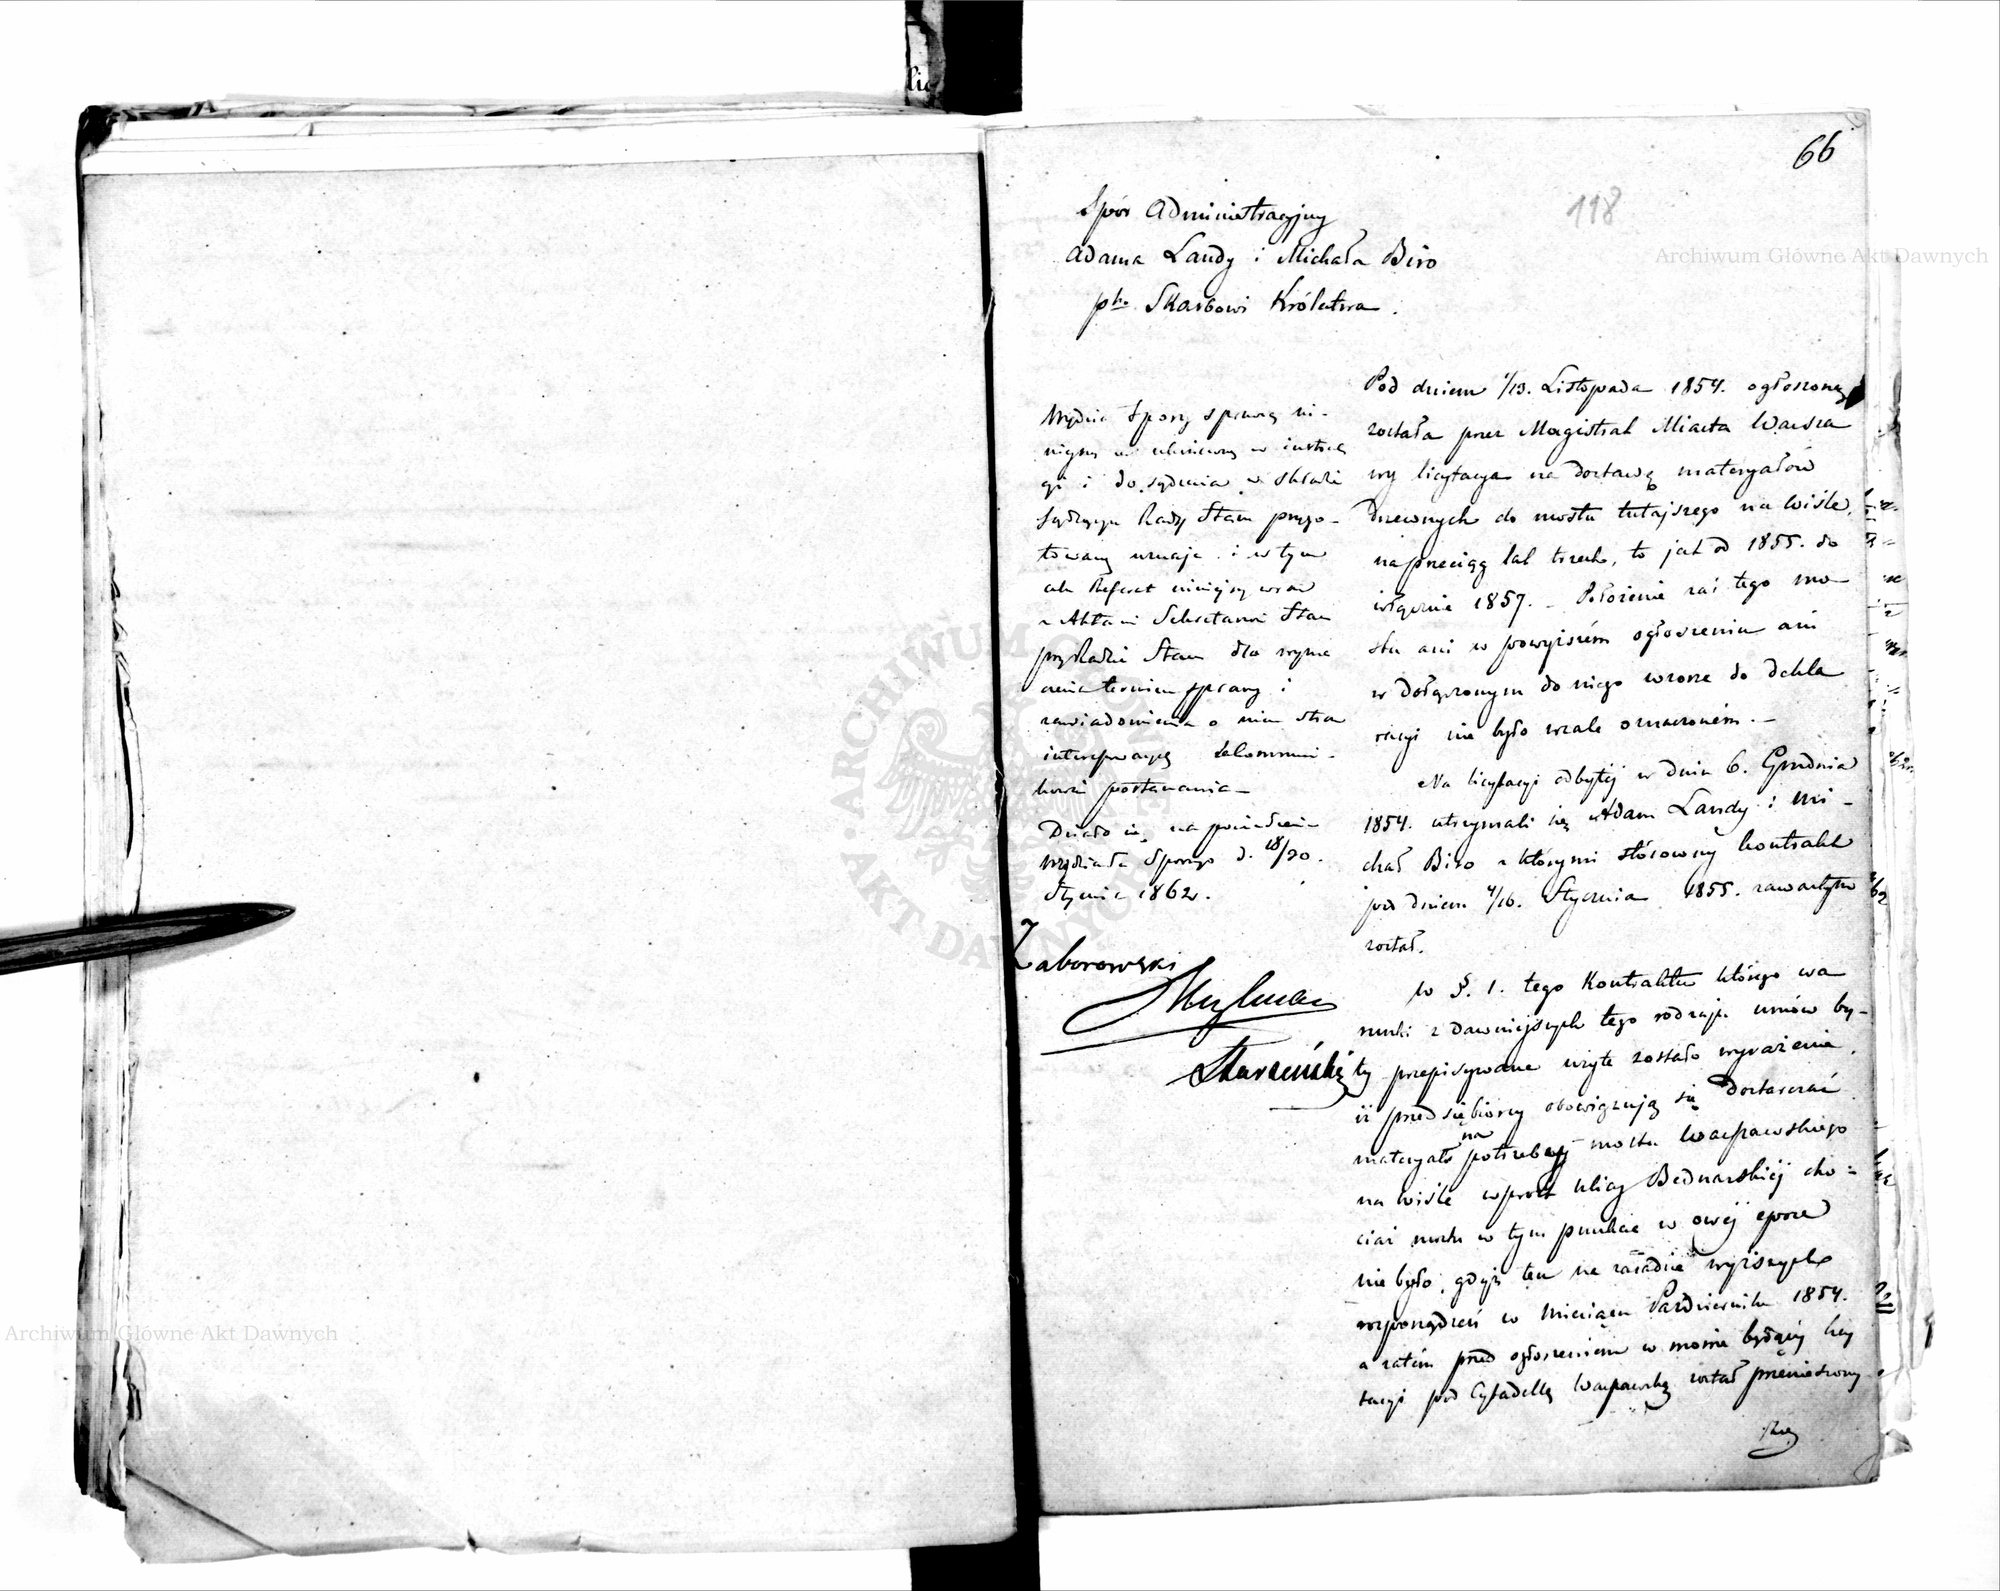 66
118
Spór Administracyjny
Adama Landy i Michała Biro
pko Skarbowi Królestwa.
Wydział Sporny sprawę ni-
niejszą w
i do sądzenia w składzie
Sądzącym Rady Stanu przygo-
towaną uznaje i w tym
celu Referat niniejszy wraz
z Aktami Sekretarzowi Stanu
przy Radzie Stanu dla wyzna
czenia terminu sprawy i
zawiadomienia o nim stron
interesowanych zakommuni-
kować postanawia —
Działo się na posiedzeniu
Wydziału Spornego d. 18/30.
Stycznia 1862 r.
Zaborowski
Starzeński
Pod dniem 1/13. Listopada 1854. ogłoszoną
została przez Magistrat Miasta Warsza
wy licytacya na dostawę materyałów
Drzewnych do mostu tutajszego na Wiśle,
na przeciąg lat trzech, to jest od 1855. do
włącznie 1857. – Położenie zaś tego mo-
stu ani w powyższém ogłoszeniu ani
w dołączonym do niego wzorze do dekla
racyi nie było wcale oznaczoném. —
Na licytacyi odbytéj w dniu 6. Grudnia
1854. utrzymali się Adam Landy i Mi-
chał Biro z którymi stósowny kontrakt
pod dniem 4/16. Stycznia 1855. zawartym
został.
W §. 1. tego Kontraktu którego wa
runki z dawniejszych tego rodzaju umów by-
ły przepisywane użyte zostało wyrażenie,
iż przedsiębiorcy obowiązują się dostarczać
materyały na potrzeby mostu Warszawskiego
na Wiśle wprost ulicy Bednarskiéj cho-
ciaż mostu w tym punkcie w owéj epoce
nie było, gdyż ten na zasadzie wyższych
rozporządzeń w Miesiącu Październiku 1854.
a zatém przed ogłoszeniem w mowie będącéj licy
tacyi pod Cytadellę Warszawską został przeniesiony